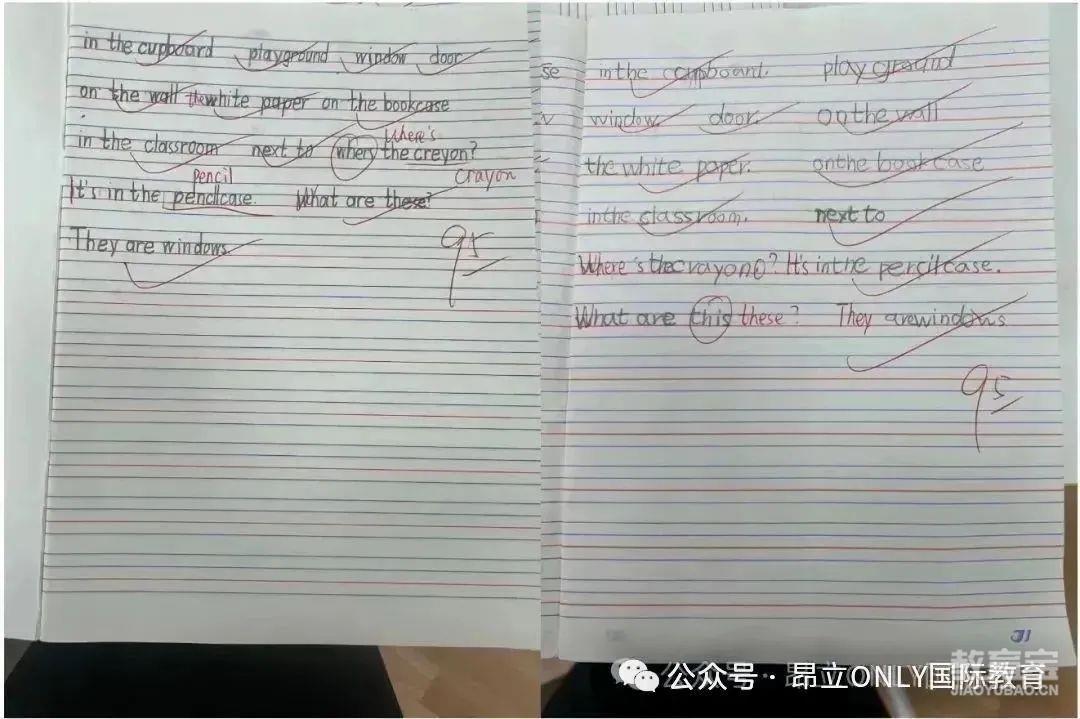 in the cupboard playground window door
on the wall the white paper on the bookcase
Where's
in the classroom next to whery the creyon?
pencil crayon
It's in the pendlcase. What are these?
They are windows.
95
se in the cupboard. playground
v window. door. on the wall
the white paper. on the bookcase
in the classroom. next to
Where's the crayon? It's in the pencilcase.
What are this these? They are windows
95
31
公众号 · 昂立ONLY国际教育
教育宝
JIAOYUBAO.CN